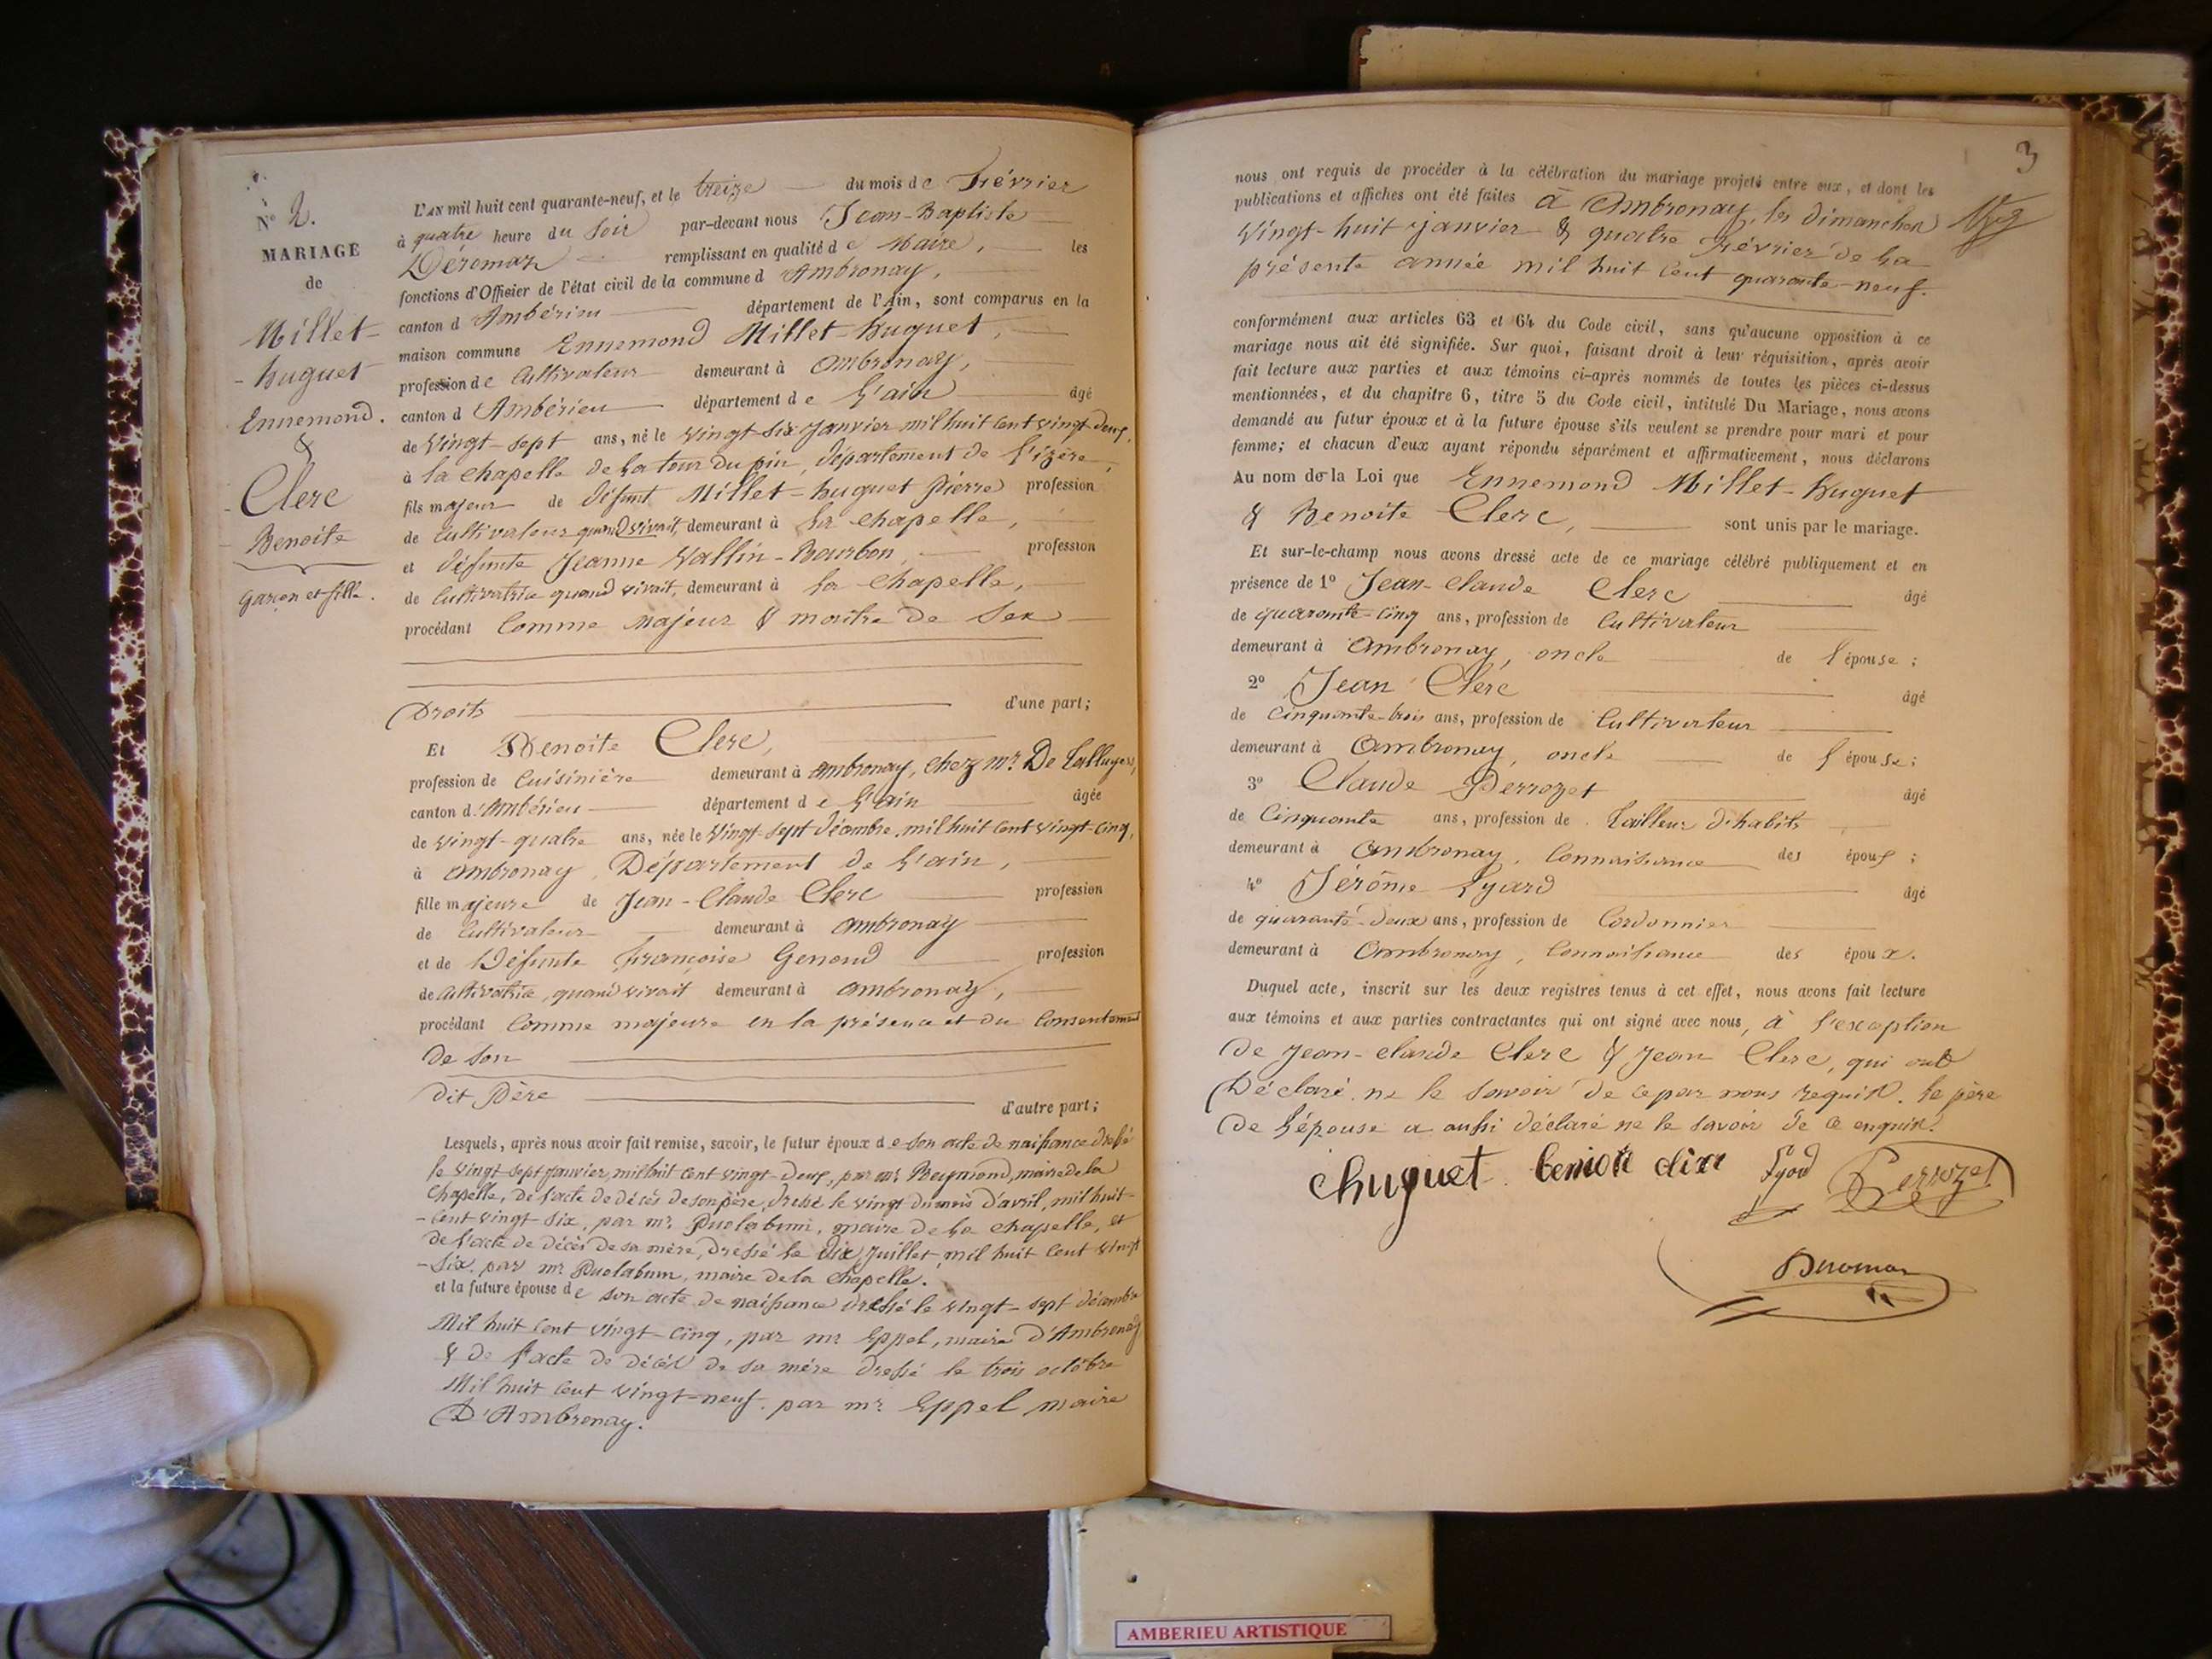 N° 2.
MARIAGE
de
Millet-
-huguet
Ennemond.
&
Clerc
Benoite
garçon et fille.
L'AN mil huit cent quarante-neuf, et le treize du mois de Février
à quatre heure du Soir par-devant nous Jean-Baptiste
Déromas remplissant en qualité de Maire, les
fonctions d'Officier de l'état civil de la commune d'Ambronay,
canton d'Ambérieu département de l'Ain, sont comparus en la
maison commune Ennemond Millet-huguet,
profession de Cultivateur demeurant à Ambronay,
canton d'Ambérieu département de L'ain âgé
de Vingt-sept ans, né le vingt-six Janvier mil huit cent vingt-deux,
à la chapelle de la tour du pin, département de l'izère,
fils majeur de défunt Millet-huguet Pierre profession
de Cultivateur quand vivait, demeurant à La chapelle,
et défunte Jeanne Vallin-Bourbon, profession
de Cultivatrice quand vivait, demeurant à La chapelle,
procédant Comme Majeur & maître de Ses
Droits d'une part;
Et Benoite Clerc,
profession de Cuisinière demeurant à Ambronay, chez mr. De
canton d'Ambérieu département de L'ain âgée
de vingt-quatre ans, née le Vingt-sept décembre, mil huit cent vingt-cinq,
à Ambronay, Département de L'ain,
fille majeure de Jean-Claude Clerc profession
de Cultivateur demeurant à Ambronay
et de Défunte françoise Genoud profession
de Cultivatrice, quand vivait demeurant à Ambronay,
procédant Comme majeure en la présence et du Consentement
de son
dit Père d'autre part;
Lesquels, après nous avoir fait remise, savoir, le futur époux de son acte de naissance dressé
le vingt-sept janvier, mil huit cent vingt-deux, par mr. Reymond, maire de la
Chapelle, de l'acte de décès de son père, dressé le vingt du mois d'avril, mil huit-
-cent vingt-six, par mr. maire de La chapelle, et
de l'acte de décès de sa mère, dressé le Dix Juillet, mil huit cent vingt
-Six, par mr. maire de la Chapelle.
et la future épouse de son acte de naissance dressé le vingt-sept décembre
Mil huit cent vingt-cinq, par mr. Eppel, maire d'Ambronay
& de l'acte de décès de sa mère dressé le trois octobre
Mil huit cent vingt-neuf, par mr. Eppel maire
D'Ambronay.
3
nous ont requis de procéder à la célébration du mariage projeté entre eux, et dont les
publications et affiches ont été faites à Ambronay, les dimanches
Vingt-huit janvier & quatre Février de la
présente année mil huit cent quarante-neuf.
conformément aux articles 63 et 64 du Code civil, sans qu'aucune opposition à ce
mariage nous ait été signifiée. Sur quoi, faisant droit à leur réquisition, après avoir
fait lecture aux parties et aux témoins ci-après nommés de toutes les pièces ci-dessus
mentionnées, et du chapitre 6, titre 5 du Code civil, intitulé Du Mariage, nous avons
demandé au futur époux et à la future épouse s'ils veulent se prendre pour mari et pour
femme; et chacun d'eux ayant répondu séparément et affirmativement, nous déclarons
Au nom de la Loi que Ennemond Millet-huguet
& Benoite Clerc, sont unis par le mariage.
Et sur-le-champ nous avons dressé acte de ce mariage célébré publiquement et en
présence de 1° Jean-Claude Clerc âgé
de quarante-cinq ans, profession de Cultivateur
demeurant à Ambronay, oncle de l'épouse;
2° Jean Clerc âgé
de Cinquante-trois ans, profession de Cultivateur
demeurant à Ambronay, oncle de l'épouse;
3° Claude Perrozet âgé
de Cinquante ans, profession de Tailleur d'habits
demeurant à Ambronay, Connaissance des époux;
4° Jérôme Lyard âgé
de quarante-deux ans, profession de Cordonnier
demeurant à Ambronay, Connaissance des époux.
Duquel acte, inscrit sur les deux registres tenus à cet effet, nous avons fait lecture
aux témoins et aux parties contractantes qui ont signé avec nous, à l'exception
de Jean-claude Clerc & Jean Clerc, qui ont
Déclaré ne le savoir de ce par nous requis. Le père
de L'épouse a aussi déclaré ne le savoir de ce enquis.
huguet Perrozet
AMBERIEU ARTISTIQUE